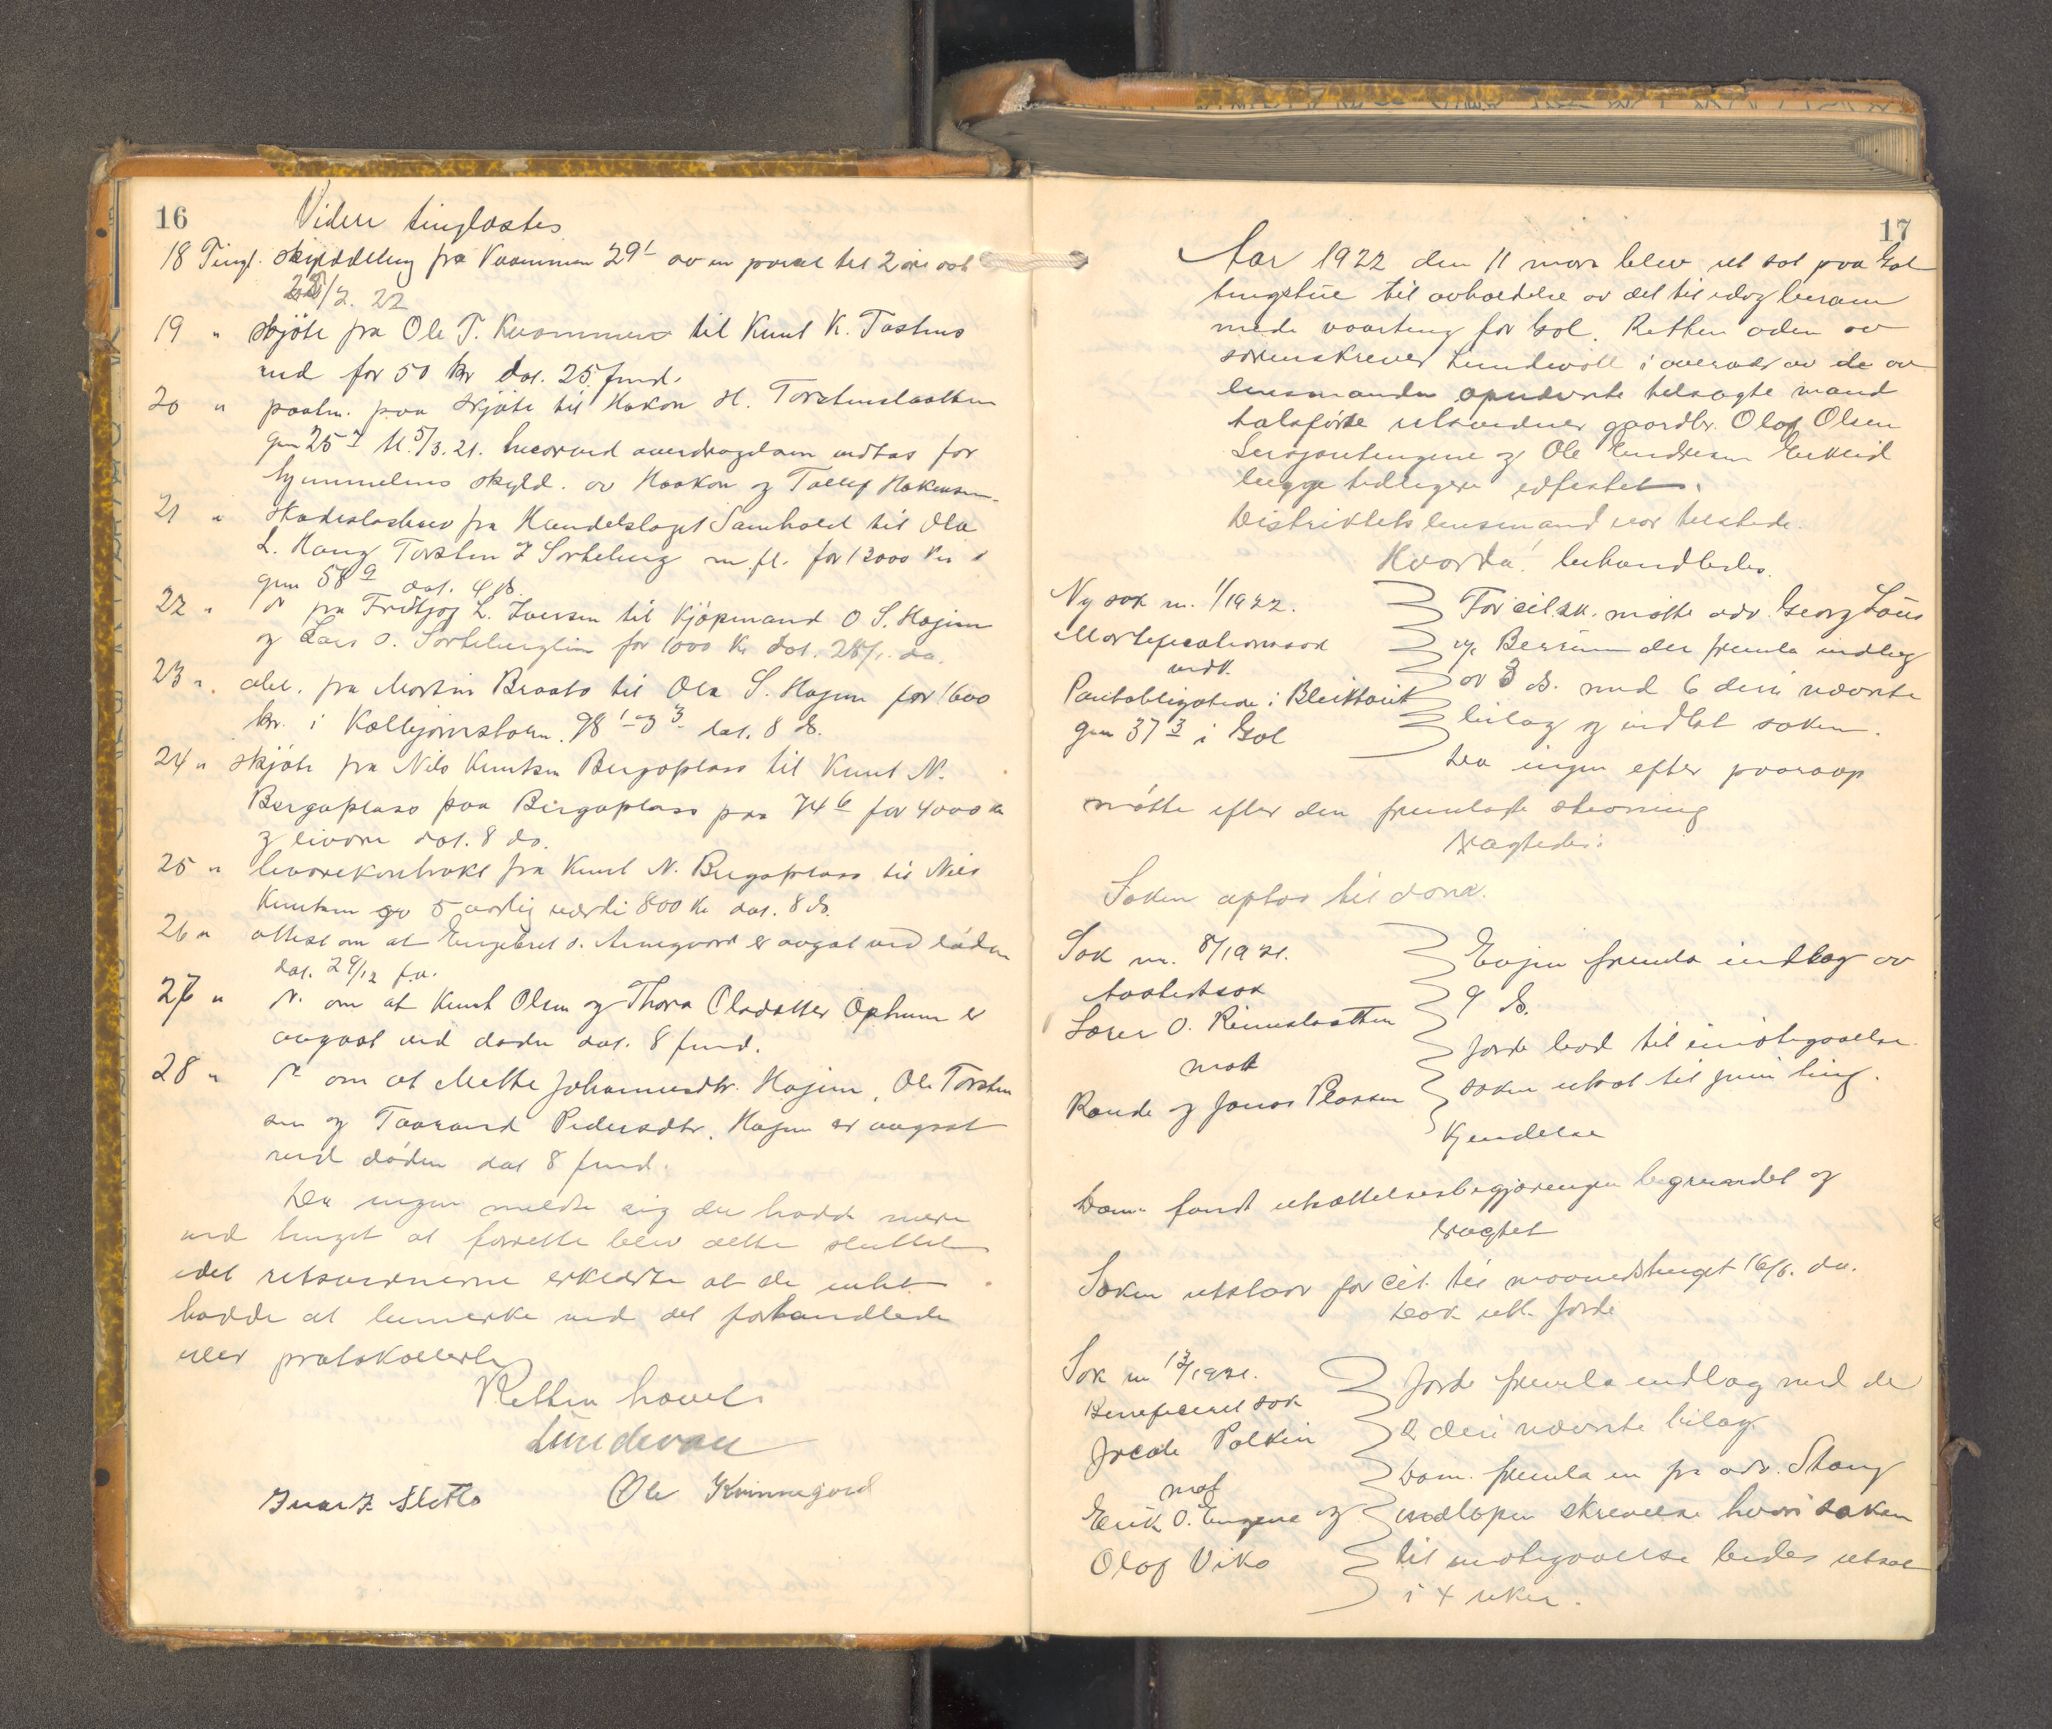 16
Videre tinglæstes
18 Tingl. skylddeling fra Kvammen 29¹ av en parcel til 2 øre dat
22/2. 22
19 " skjöte fra Ole T. Kvammen til Knut K. Tostens
rud for 50 kr dat. 25 fmd.
20 " paategn. paa skjöte til Hakon H. Torstenslaatten
gnr 25 tl. 5/3. 21. hvorved overdragelsen indtas for
hjemmelens skyld. av Haakon og Tollef Hakensen.
21 " skadesløsbrev fra Handelslaget Samhold til Ola
L. Haug Torsten T Sorteberg m.fl. for 12000 kr i
gnr 58 9 dat. 4 ds.
22 " N fra Fridtjog L. Iversen til Kjöpmand O S. Hajem
og Lars O. Sorteberglien for 1000 kr dat. 28/1. da.
23 " obl. fra Martin Braato til Ola S. Hajem for 1600
kr. i Kolbjørnstorn. 98 1-3 3 dat. 8 ds.
24 " skjöte fra Nils Knutsen Bergaplass til Knut N.
Bergaplass paa Bergaplass paa 74 6 for 4000 kr
og livøre dat. 8 ds.
25 " livørekontrakt fra Knut N. Bergaplass til Nils
Knutsen av 5 aarlig værdi 800 kr dat. 8 ds.
26 " attest om at Engebret O. Arnegaard er avgat ved döden
dat. 29/12 f.a.
27 " N. om at Knut Olsen og Thora Olsdatter Opheim er
avgaat ved döden dat. 8 fmd.
28 " N om at Mette Johannesdtr. Hajem, Ole Torsten
sen og Taarand Pedersdtr. Hajem er avgaat
ved döden dat 8 fmd.
Da ingen meldte sig der hadde mere
ved tinget at forrette blev dette sluttet
idet retsvidnerne erklærte at de intet
hadde at bemerke ved det forhandlede
eller protokollerte
Retten hævet.
Lundevall
Ivar T. Sletto Ole Kvinnegard
17
Aar 1922 den 11 mars blev ret sat paa Gol
tingstue til avholdelse av det til idag beram
mede vaarting for Gol. Retten aden av
sorenskriver Lundevall i overvær av de av
lensmanden opnævnte tilsagte mand
talsførte retsvidner gaardbr. Olaf Olsen
og Ole Endresen Eikleid
begge tidligere edfestet.
Distriktets lensmand var tilstede.
Hvorda! behandledes.
Ny sak nr. 1/1922.
Mortifikationssak
vedk.
Pantobligation i Bleiktveit
gnr 37 3 i Gol
For cit.sk. møtte adv. Georg Lous
v/ Bersum der fremla indlæg
av 3 ds. med 6 deri nævnte
bilag og indlot saken.
Da ingen efter paaraap
møtte efter den fremlagte stevning
Vragtedes:
Saken optas til dom.
Sak nr. 8/1921.
Aastedssak
Lærer O. Rimeslaatten
mot
Rande og Jonas Plassen
Evjen fremla indlæg av
9 ds.
Jorde bad til imøtegaaelse
saken utsat til juni ting.
Kjendelse
Dom. fandt utsættelsesbegjæringen begrundet og
Vragtet
Saken utstaar for cit. til maanedstinget 16/6. da.
Dok utl. Jorde
Sak nr 13/1921.
Beneficeret sak
Jocole Palkin
mot
Erik O. Engene og
Olaf Viko
Jorde fremla indlæg med de
2 deri nævnte bilag.
Dom. fremla en fra adv. Stang
indløpen skrivelse hvori saken
til imøtegaaelse bedes utsat
i 4 uker.